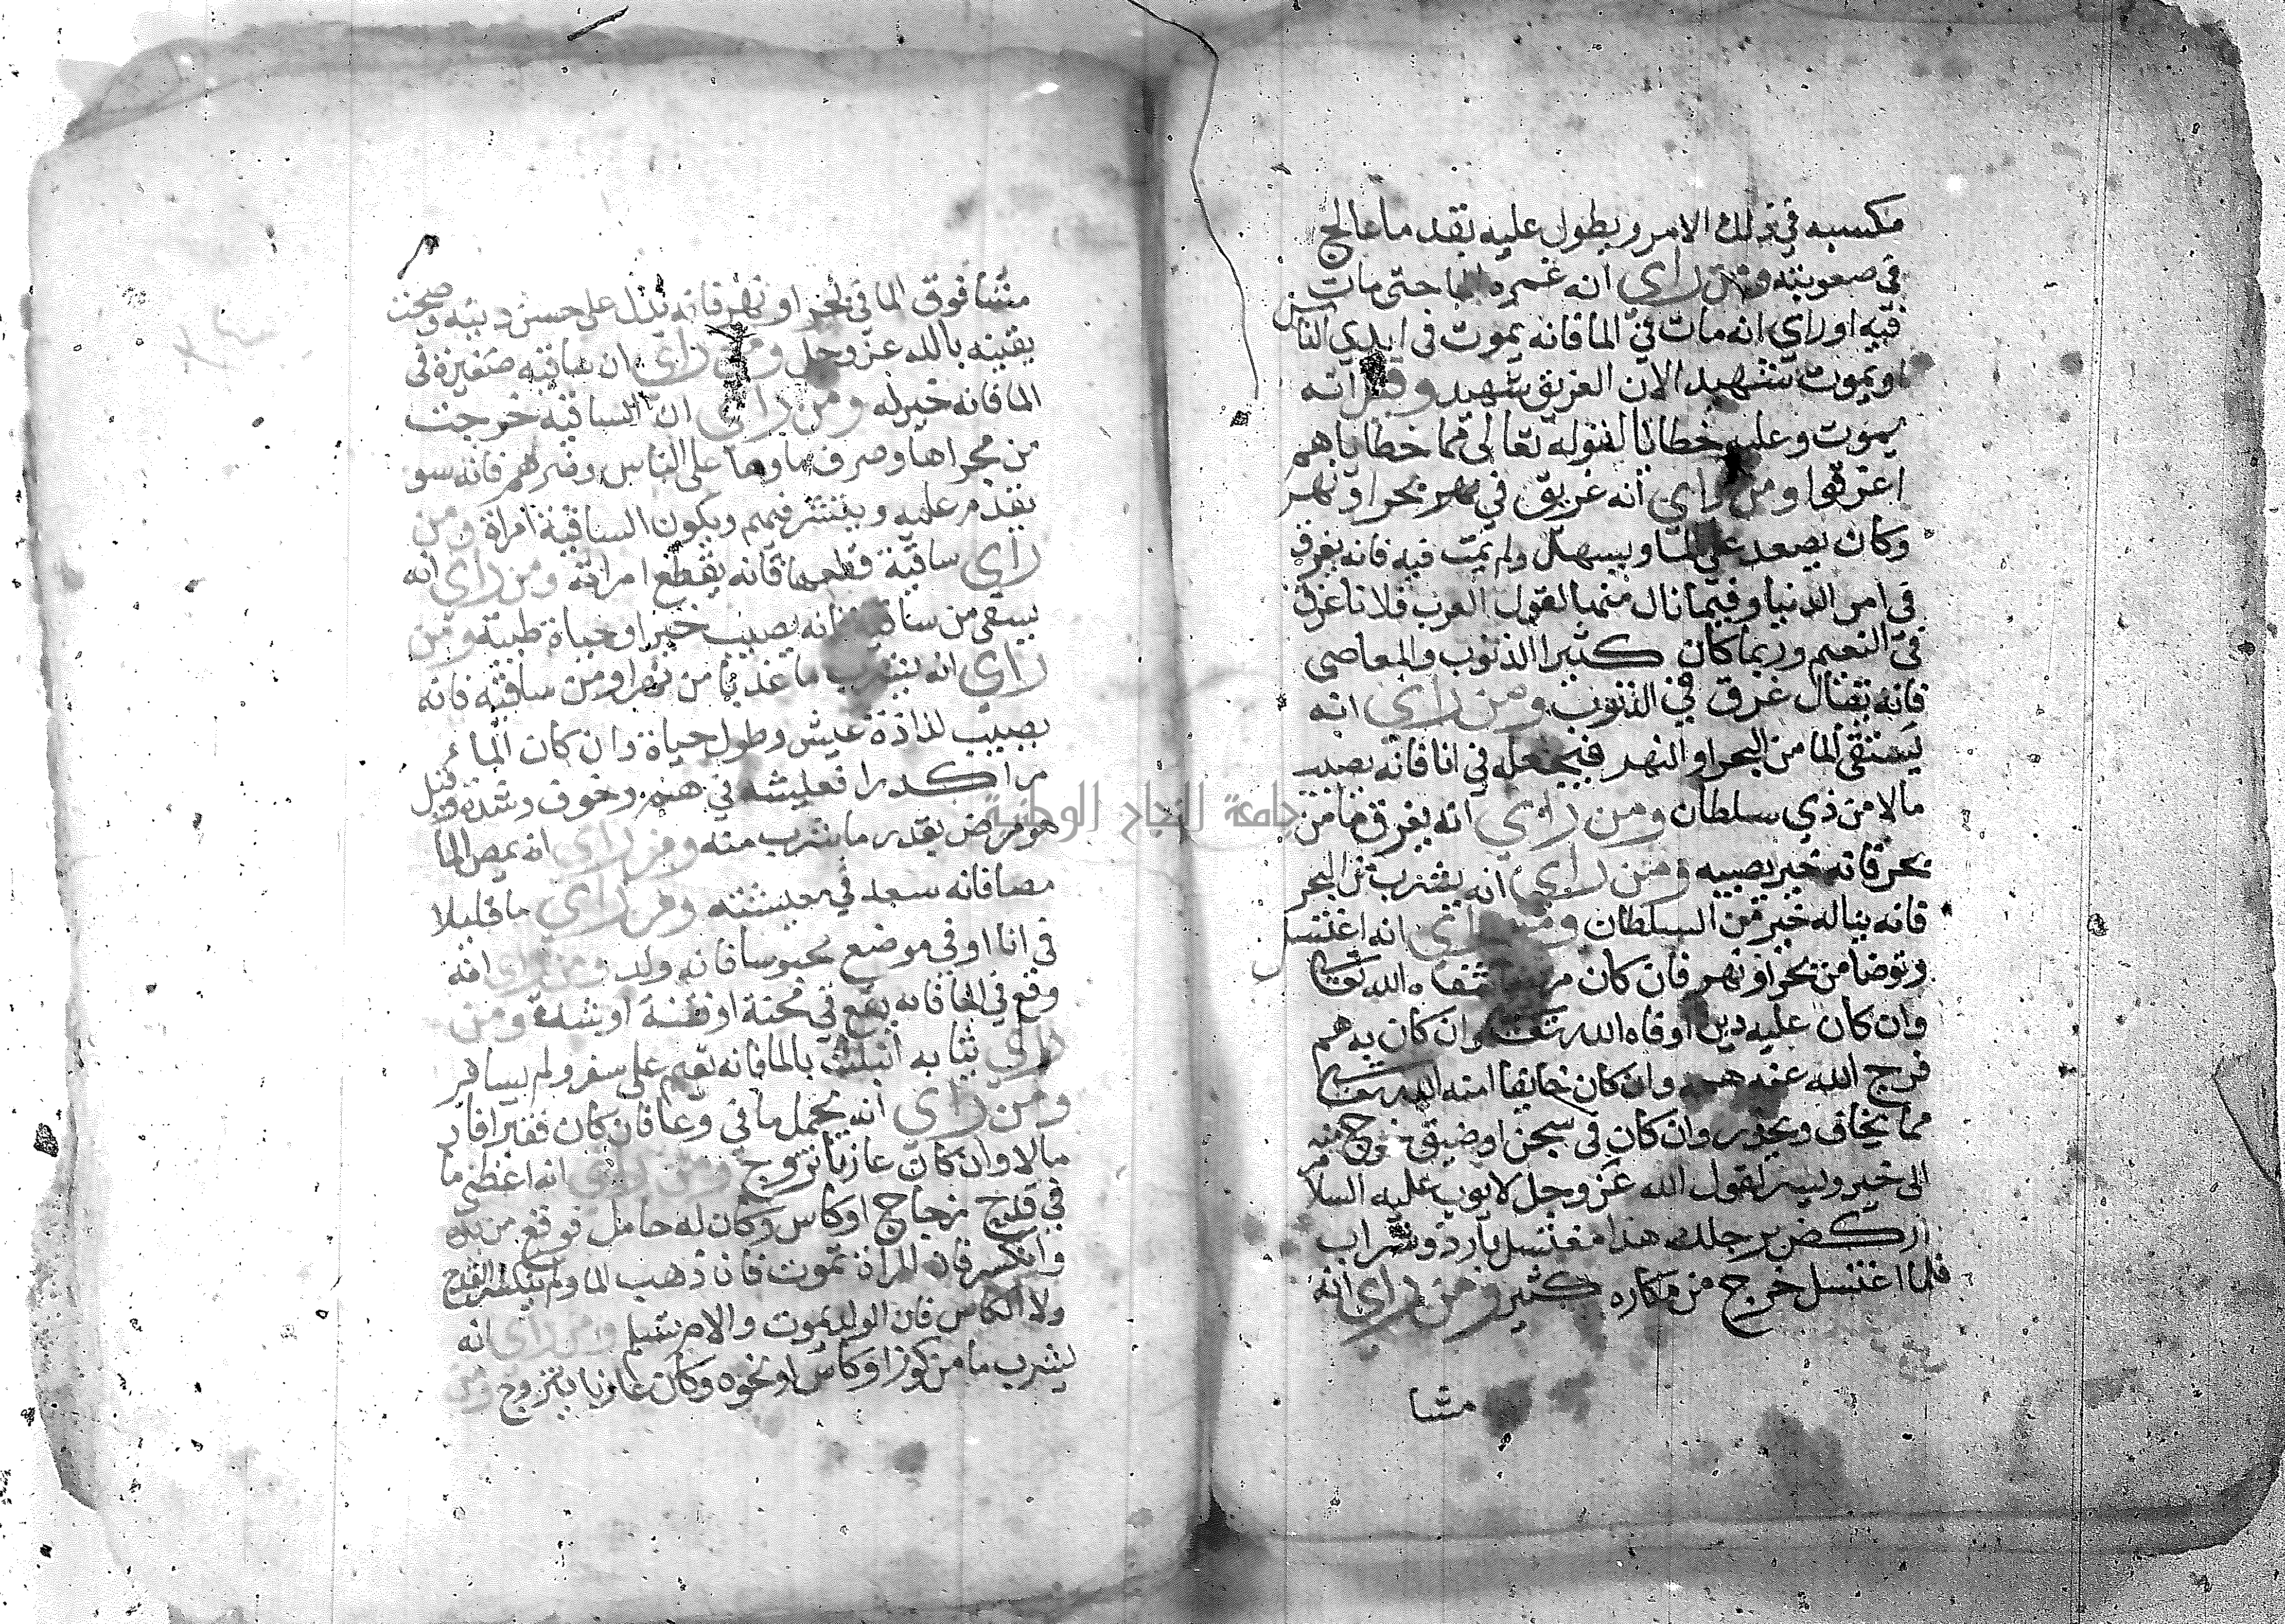 مكسبه في ذلك الامر ويطول عليه بقدر ما عالج
في صعوبته ومن راي انه غمره الما حتى مات
فيه او راي انه مات في الما فانه يموت في ايدي الناس
او يموت شهيدا لان الغريق شهيد وقيل انه
يموت وعليه خطايا لقوله تعالى مما خطاياهم
اغرقوا ومن راي انه غريق في بحر او نهر
وكان يصعد على الما ويسهل ولم يمت فيه فانه يغرق
في امر الدنيا وفيما نال منها لقول العرب فلانا غرق
في النعيم وربما كان كثير الذنوب والمعاصي
فانه يقال غرق في الذنوب ومن راي انه
يستقى الما من البحر او النهر فيجعله في انا فانه يصيب
مالا من ذي سلطان ومن راي انه يغرق ما من
بحر فانه خير يصيبه ومن راي انه يشرب من البحر
فانه يناله خير من السلطان ومن راي انه اغتسل
وتوضا من بحر او نهر فان كان شفاه الله تعالى
وان كان عليه دين اوفاه الله تعالى وان كان به هم
فرج الله عنه همه وان كان خايفا امنه الله تعالى
مما يخاف ويحذر وان كان في سجن او ضيق خرج منه
الى خير وليسر لقول الله عز وجل لايوب عليه السلام
اركض برجلك هذا مغتسل بارد وشراب
فلما اغتسل خرج من مكاره كثير ومن راي انه
مشا
مشا فوق الما في بحر او نهر فانه يدل على حسن دينه وصحت
يقينه بالله عز وجل ومن راي ان ساقيه صغيرة في
الما فانه خير له ومن راي ان الساقيه خرجت
من مجراها وصرف ماوها على الناس وضرهم فانه سو
يقدم عليه وينتشر فيهم ويكون الساقية امراة ومن
راي ساقية قطعها فانه يقطع امراته ومن راي انه
يسقى من ساقيه فانه يصيب خير او حياة طيبة ومن
راي انه يشرب ما عذبا من نهر او من ساقيه فانه
يصيب لذاذة عيش وطول حياة وان كان الما
مرا كدرا فعليشه في هم وخوف وشدة وقيل
هو مرض بقدر ما شرب منه ومن راي انه يمص الما
مصا فانه سعد في معيشته ومن راي ما قليلا
في انا او في موضع محبوسا فانه ولد ومن راي انه
وقع في الما فانه يقع في محنة او فتنة او شدة ومن
راي ثيابه ابتلت بالما فانه يقيم على سفر ولم يسافر
ومن راي انه يحمل ما في وعا فان كان فقيرا افاد
مالا وان كان عازبا تزوج ومن راي انه اعطي ما
في قدح زجاج او كاس وكان له حامل فوقع من يده
وانكسر فان المراة تموت فان ذهب الما ولم ينكسر القدح
ولا الكاس فان الولد يموت والام تسلم ومن راي انه
يشرب ما من كوز او كاس او نحوه وكان عازبا يتزوج ومن
جامعة النجاح الوطنية